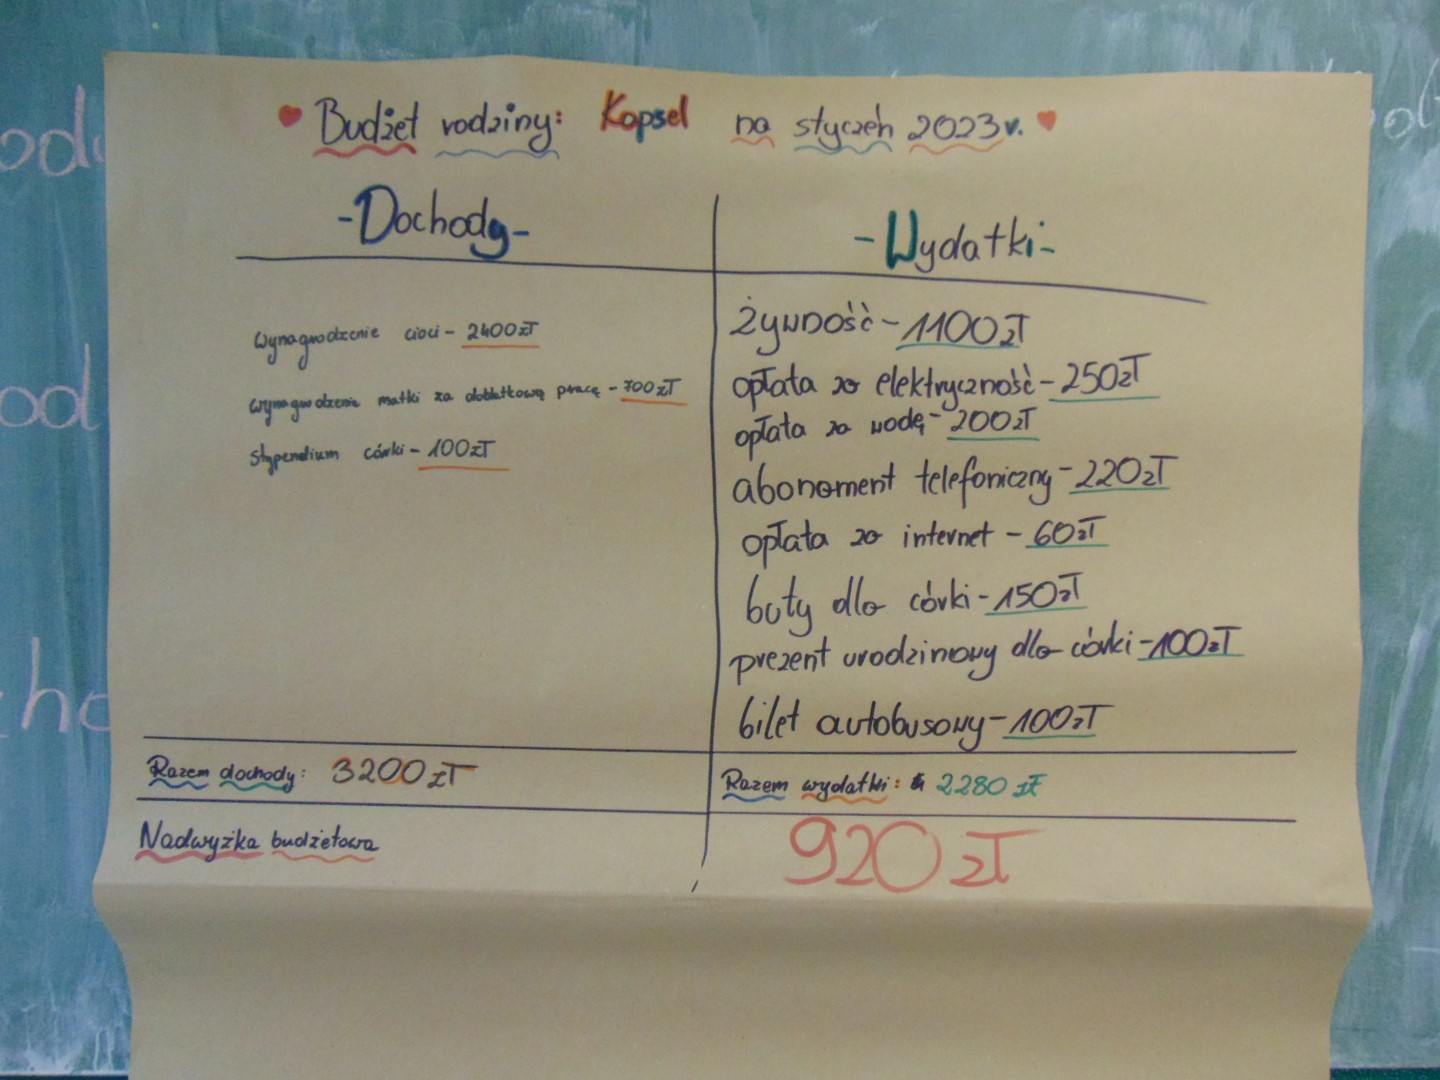 Budżet rodziny: Kopsel na styczeń 2023 r.
-Dochody-
-Wydatki-
Wynagrodzenie cioci - 2400zł
wynagrodzenie matki za dodatkową pracę - 700zł
stypendium córki - 100zł
żywność - 1100zł
opłata za elektryczność - 250zł
opłata za wodę - 200zł
abonoment telefoniczny - 220zł
opłata za internet - 60zł
buty dla córki - 150zł
prezent urodzinowy dla córki - 100zł
bilet autobusowy - 100zł
Razem dochody: 3200zł
Razem wydatki: 2280 zł
Nadwyżka budżetowa
920 zł